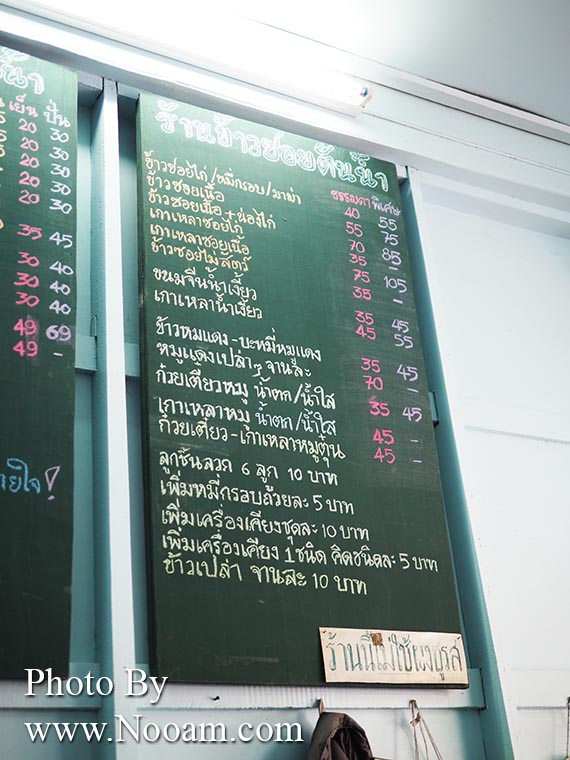 เย็น ปั่น
20 30
20 30
20 30
20 30
20 30
35 45
30 40
30 40
30 40
49 69
49 -
ร้านข้าวซอยต้นน้ำ
ธรรมดา พิเศษ
ข้าวซอยไก่/หมี่กรอบ/มาม่า 40 55
ข้าวซอยเนื้อ 55 75
ข้าวซอยเนื้อ + น่องไก่ 70 85
เกาเหลาซอยไก่ 35 -
เกาเหลาซอยเนื้อ 75 105
ข้าวซอยไม่สัตว์ 35 -
ขนมจีนน้ำเงี้ยว 35 45
เกาเหลาน้ำเงี้ยว 45 55
ข้าวหมูแดง-บะหมี่หมูแดง 35 45
หมูแดงเปล่าๆ จานละ 70 -
ก๋วยเตี๋ยวหมู น้ำตก/น้ำใส 35 45
เกาเหลาหมู น้ำตก/น้ำใส 45 -
ก๋วยเตี๋ยว-เกาเหลาหมูตุ๋น 45 -
ลูกชิ้นลวก 6 ลูก 10 บาท
เพิ่มหมี่กรอบถ้วยละ 5 บาท
เพิ่มเครื่องเคียงชุดละ 10 บาท
เพิ่มเครื่องเคียง 1 ชนิด คิดชนิดละ 5 บาท
ข้าวเปล่า จานละ 10 บาท
ร้านนี้ไม่ใช้ผงชูรส
Photo By
www.Nooam.com